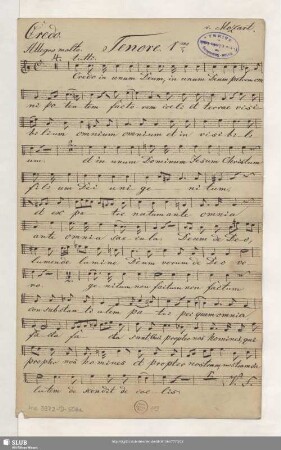 Credo. v. Mozart.
Allegro molto. Tenore 1mo
tutti.
Credo in unum Deum, in unum Deum patrem om
ni po ten tem facto rem coeli et terrae visi
bi lium omnium omnium et in visi bi li
um. et in unum Dominum Jesum Christum
fili um Dei uni ge ni tum.
et ex pa tre natum ante omnia
ante omnia sae cula. Deum de De o,
lumen de lumine Deum verum de Deo ve
ro. ge nitum non factum non factum
con substan ti alem pa tri per quem omnia
fa cta fa cta qui
propter nos homines et propter nostram
lutem de scendit de coe lis.
SLUB